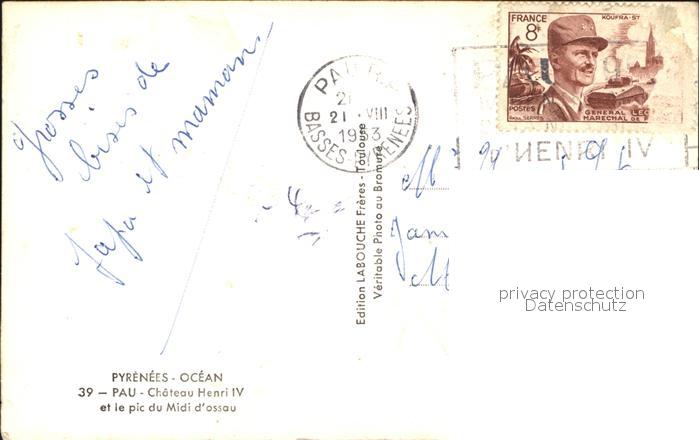 grosses
bises de
Papa et maman.
PYRÉNÉES - OCÉAN
39 — PAU - Château Henri IV
et le pic du Midi d'ossau
Edition LABOUCHE Frères - Toulouse
Véritable Photo au Bromure
PAU
21 VIII
BASSES-PYRENEES
FRANCE
KOUFRA-ST
8F
POSTES
GENERAL LEC
MARECHAL DE F
HENRI IV
privacy protection
Datenschutz